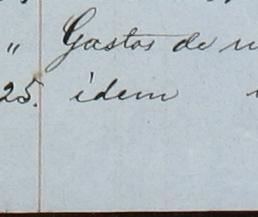 " Gastos de
25. idem